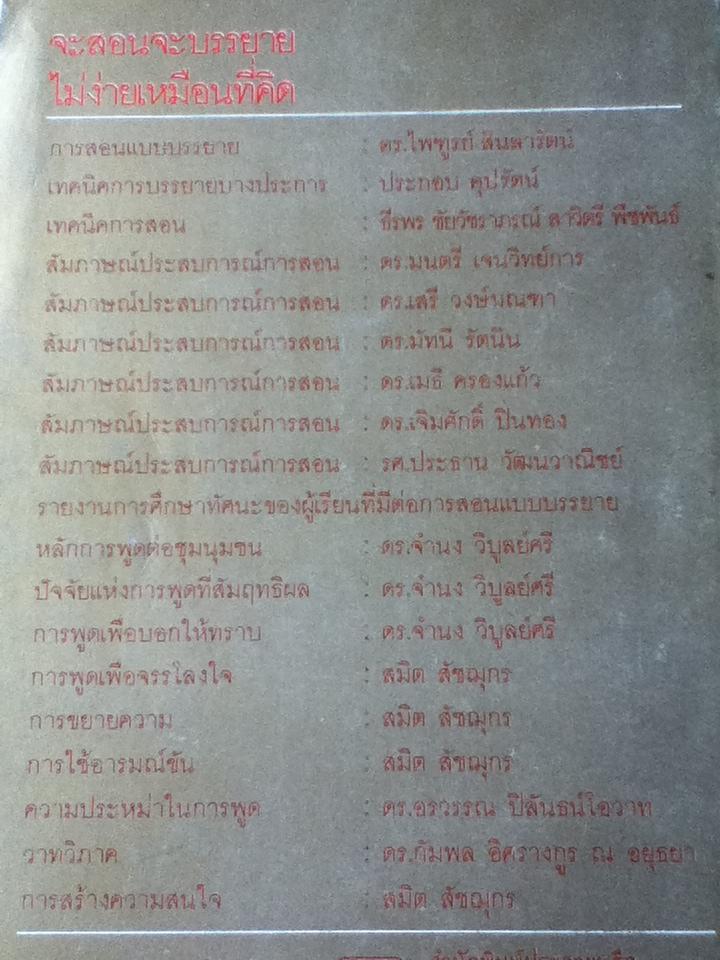 จะสอนจะบรรยาย
ไม่ง่ายเหมือนที่คิด
การสอนแบบบรรยาย : ดร.ไพฑูรย์ สินลารัตน์
เทคนิคการบรรยายบางประการ : ประกอบ คุปรัตน์
เทคนิคการสอน : ธีรพร ชัยวัชราภรณ์ ลาวิตรี พืชพันธ์
สัมภาษณ์ประสบการณ์การสอน : ดร.มนตรี เจนวิทย์การ
สัมภาษณ์ประสบการณ์การสอน : ดร.เสรี วงษ์มณฑา
สัมภาษณ์ประสบการณ์การสอน : ดร.มัทนี รัตนิน
สัมภาษณ์ประสบการณ์การสอน : ดร.เมธี ครองแก้ว
สัมภาษณ์ประสบการณ์การสอน : ดร.เจิมศักดิ์ ปิ่นทอง
สัมภาษณ์ประสบการณ์การสอน : รศ.ประธาน วัฒนวาณิชย์
รายงานการศึกษาทัศนะของผู้เรียนที่มีต่อการสอนแบบบรรยาย
หลักการพูดต่อชุมนุมชน : ดร.จำนง วิบูลย์ศรี
ปัจจัยแห่งการพูดที่สัมฤทธิผล : ดร.จำนง วิบูลย์ศรี
การพูดเพื่อบอกให้ทราบ : ดร.จำนง วิบูลย์ศรี
การพูดเพื่อจรรโลงใจ : สมิต สัชฌุกร
การขยายความ : สมิต สัชฌุกร
การใช้อารมณ์ขัน : สมิต สัชฌุกร
ความประหม่าในการพูด : ดร.อรวรรณ ปิลันธน์โอวาท
วาทวิภาค : ดร.กัมพล อิศรางกูร ณ อยุธยา
การสร้างความสนใจ : สมิต สัชฌุกร